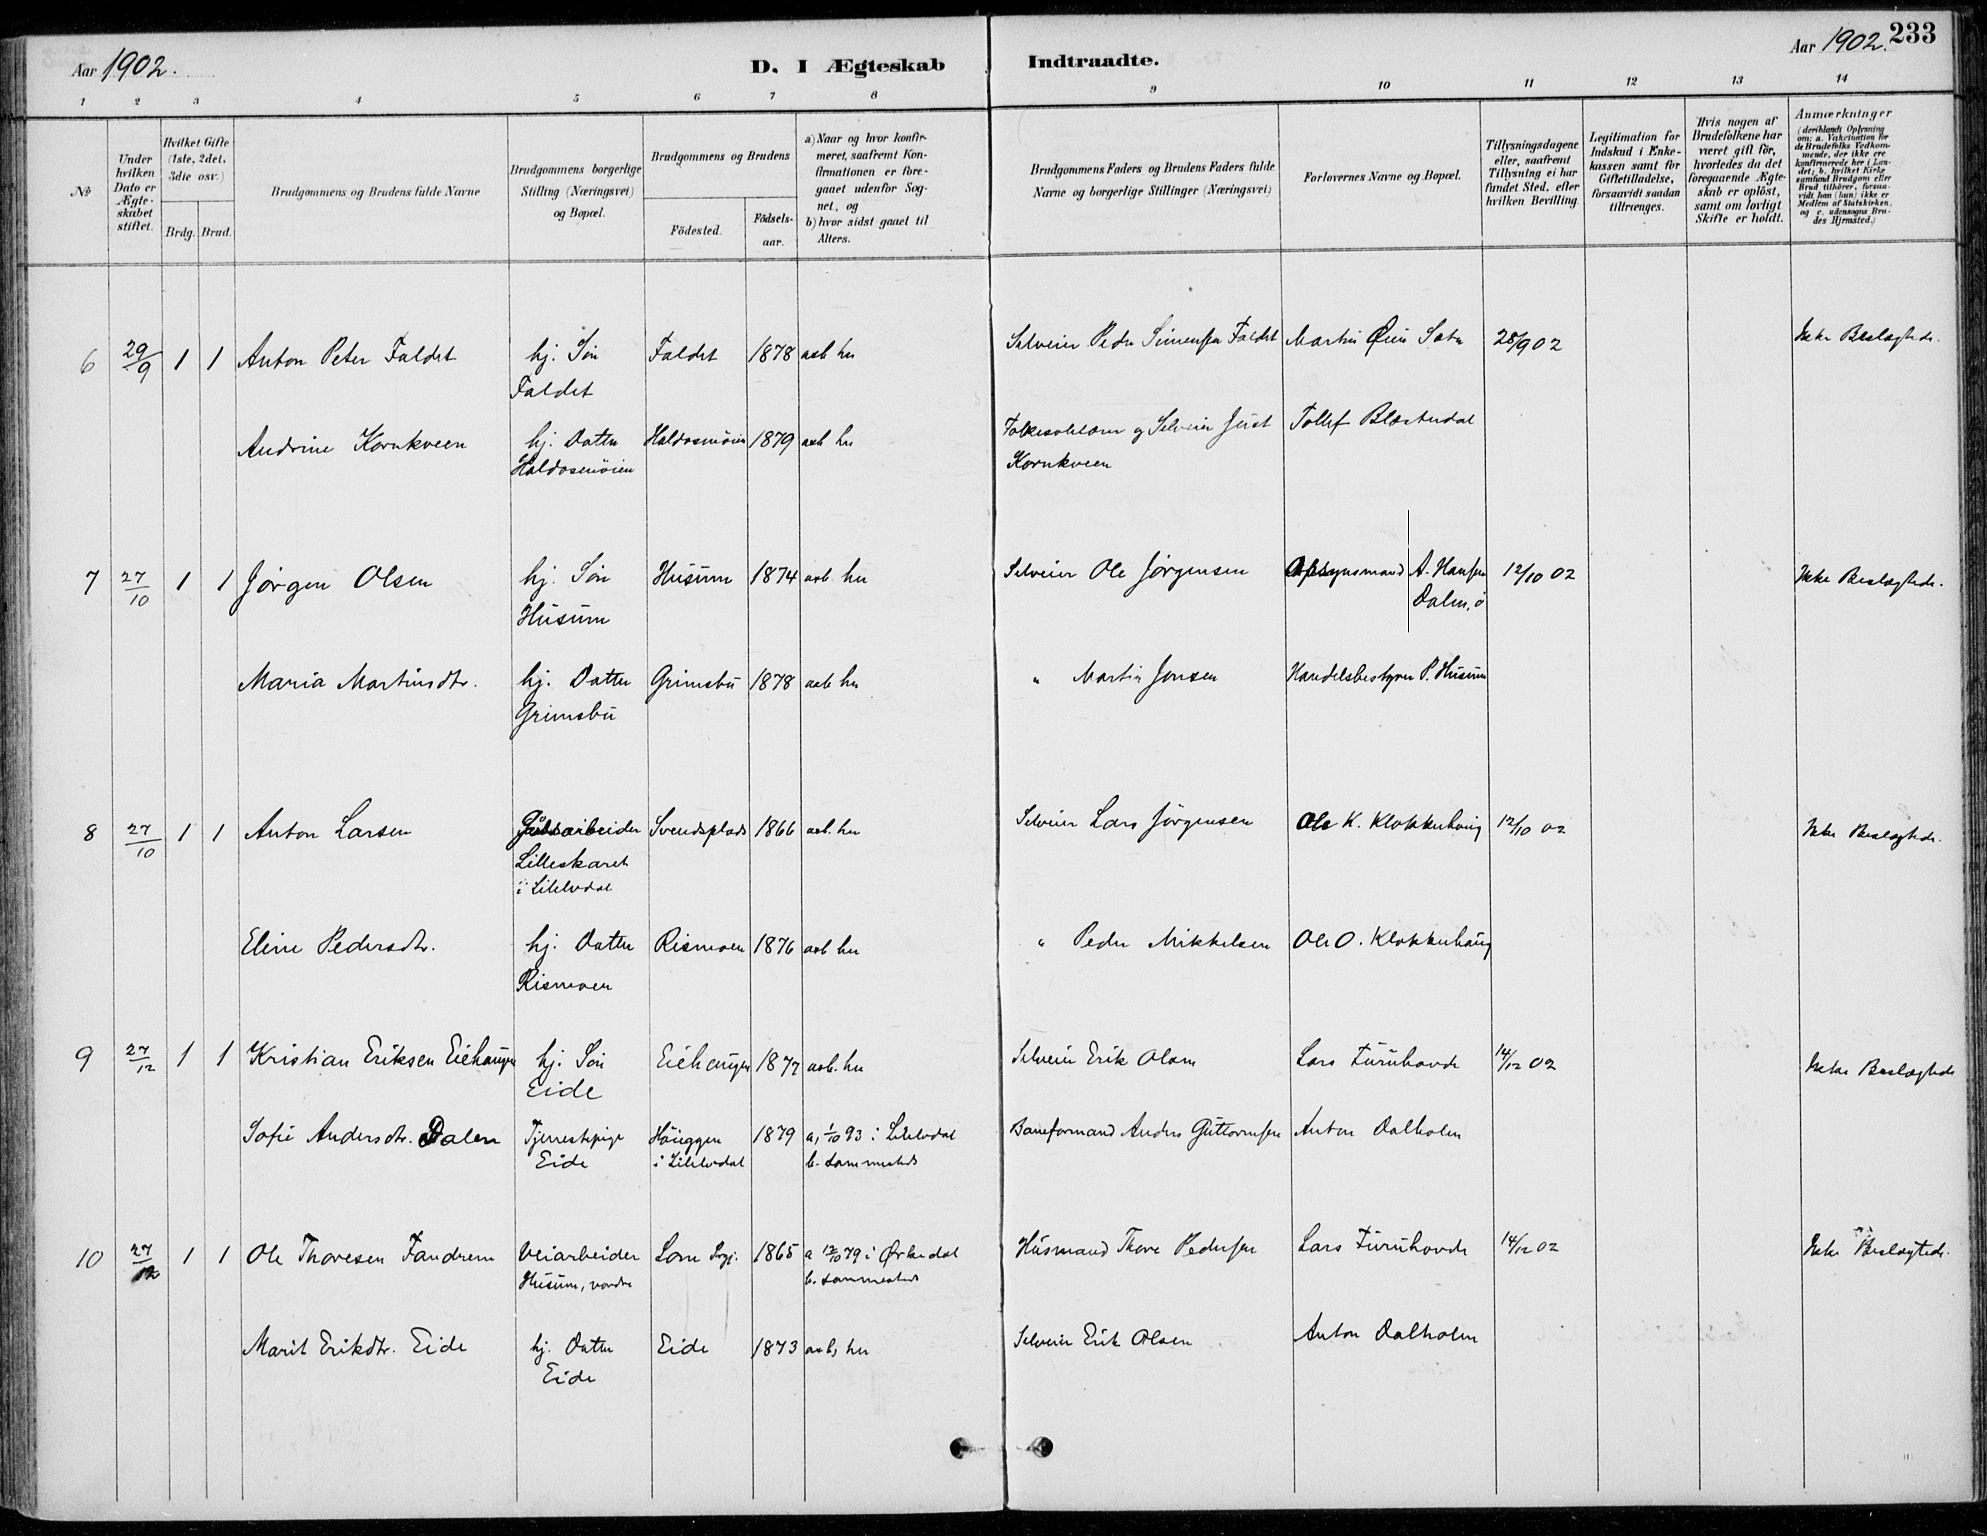 Aar 1902.
D. I Ægteskab Indtraadte.
Aar 1902. 233
1 2 3 4 5 6 7 8 9 10 11 12 13 14
No
Under hvilken Dato er Ægteskabet stiftet.
Hvilket Gifte (1ste, 2det, 3die osv.)
Brdg. Brud.
Brudgommens og Brudens fulde Navne
Brudgommens borgerlige Stilling (Næringsvei) og Bopæl.
Brudgommens og Brudens
Födested.
Födsels-aar.
a) Naar og hvor konfir-
meret, saafremt Kon-
firmationen er fore-
gaaet udenfor Sog-
net, og
b) hvor sidst gaaet til
Alters.
Brudgommens Faders og Brudens Faders fulde
Navne og borgerlige Stillinger (Næringsvei)
Forlovernes Navne og Bopæl.
Tillysningsdagene
eller, saafremt
Tillysning ei har
fundet Sted, efter
hvilken Bevilling.
Legitimation for
Indskud i Enke-
kassen samt for
Giftetilladelse,
forsaavidt saadan
tiltrænges.
Hvis nogen af
Brudefolkene har
været gift för,
hvorledes da det
foregaaende Ægte-
skab er oplöst,
samt om lovligt
Skifte er holdt.
Anmærkninger
(deriblandt Oplysning
om: a. Vakcination for
de Brudefolks Vedkom-
mende, der ikke ere
konfirmerede her i Lan-
det; b. hvilket Kirke-
samfund Brudgom eller
Brud tilhörer, forsaa-
vidt han (hun) ikke er
Medlem af Statskirken,
og c. udensogns Bru-
des Hjemsted.)
6 29/9 1 1 Anton Peter Faldet hj. Søn Faldet 1878 aab her Selveier Peder Simensen Faldet Martin Øien Sater 28/9 02 Ikke Beslægtede.
Faldet
Andrine Kornkveen hj. Datter Haldosmöien 1879 aab her Folkeskolelærer og Selveier Just Tollef Blæsterdal
Haldosmöien Kornkveen
7 27/10 1 1 Jørgen Olsen hj. Søn Husum 1874 aab. her Selveier Ole Jørgensen Opsynsmand A. Hansen 12/10 02 Ikke Beslægtede.
Husum Dalen, ö
Maria Martinsdtr. hj. Datter Grimsbu 1878 aab her " Martin Jonsen Handelsbestyrer P. Husum
Grimsbu
8 27/10 1 1 Anton Larsen Svendsplads 1866 aab. her Selveier Lars Jørgensen Ole K. Klokkerhaug 12/10 02 Ikke Beslægtede.
Lilleskaret
i Lilelvdal
Eline Pedersdtr. hj. Datter Rismoen 1876 aab her " Peder Mikkelsen Ole O. Klokkerhaug
Rismoen
9 27/12 1 1 Kristian Eriksen Eiehaugen hj. Søn Eiehaugen 1877 aab. her Selveier Erik Olsen Lars Furuhovde 14/12 02 Ikke Beslægtede
Eide
Sofie Andersdtr. Dalen Tjenestepige Hauggen 1879 a, 1/10 93 i Lilelvdal Baneformand Anders Guttormsen Anton Dalholen
Eide i Lilelvdal b. sammesteds
10 27/12 1 1 Ole Thoresen Fandrem Veiarbeider Lom Prgj. 1865 a 12/10 79 i Ørkedal Husmand Thore Pedersen Lars Furuhovde 14/12 02 Ikke Beslægtede.
Husum, nordre b. sammesteds
Marit Eriksdtr. Eide hj. Datter Eide 1873 aab, her Selveier Erik Olsen Anton Dalholen
Eide